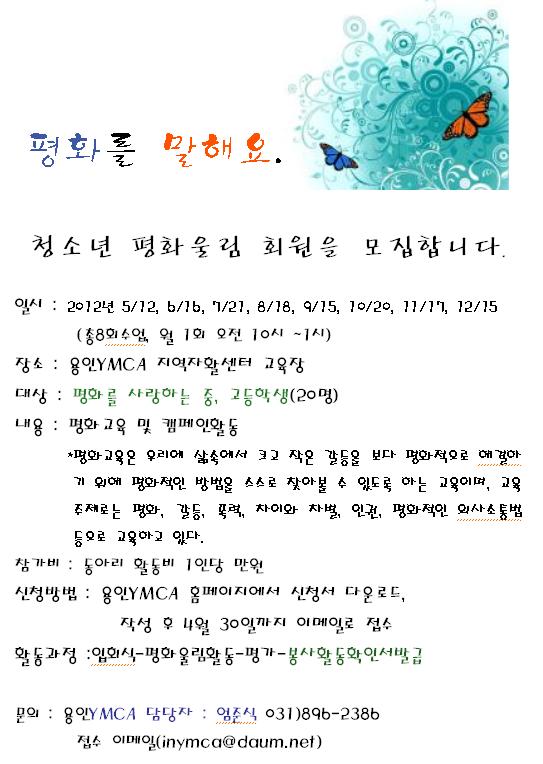 평화를 말해요.
청소년 평화울림 회원을 모집합니다.
일시 : 2012년 5/12, 6/16, 7/21, 8/18, 9/15, 10/20, 11/17, 12/15
(총8회수업, 월 1회 오전 10시 ~1시)
장소 : 용인YMCA 지역자활센터 교육장
대상 : 평화를 사랑하는 중, 고등학생(20명)
내용 : 평화교육 및 캠페인활동
*평화교육은 우리에 삶속에서 크고 작은 갈등을 보다 평화적으로 해결하
기 위해 평화적인 방법을 스스로 찾아볼 수 있도록 하는 교육이며, 교육
주제로는 평화, 갈등, 폭력, 차이와 차별, 인권, 평화적인 의사소통법
등으로 교육하고 있다.
참가비 : 동아리 활동비 1인당 만원
신청방법 : 용인YMCA 홈페이지에서 신청서 다운로드,
작성 후 4월 30일까지 이메일로 접수
활동과정 :입회식-평화울림활동-평가-봉사활동확인서발급
문의 : 용인YMCA 담당자 : 엄준식 031)896-2386
접수 이메일(inymca@daum.net)